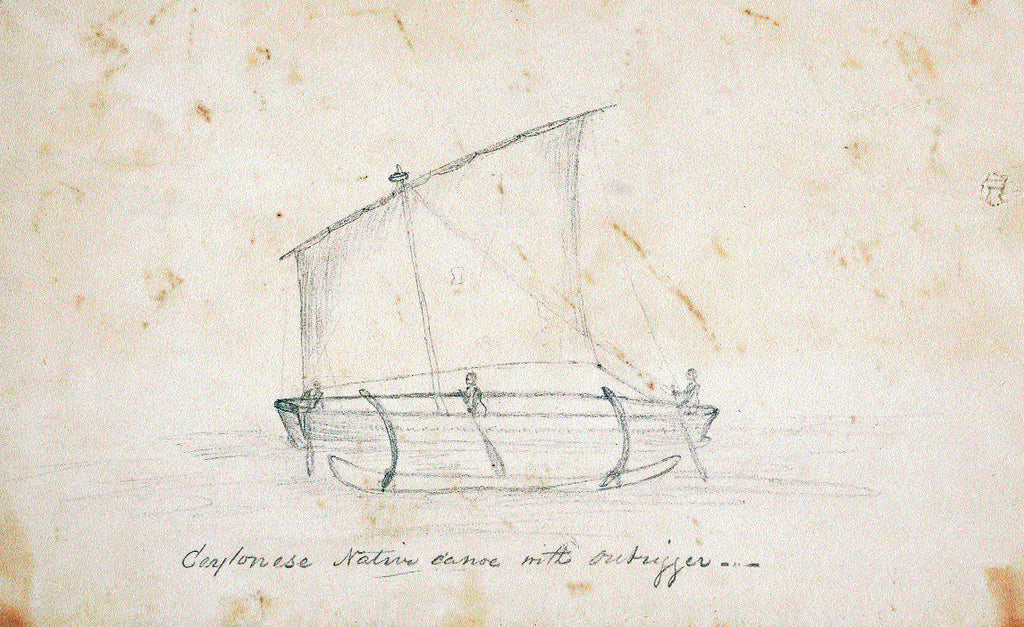 Ceylonese Native canoe with outrigger ---